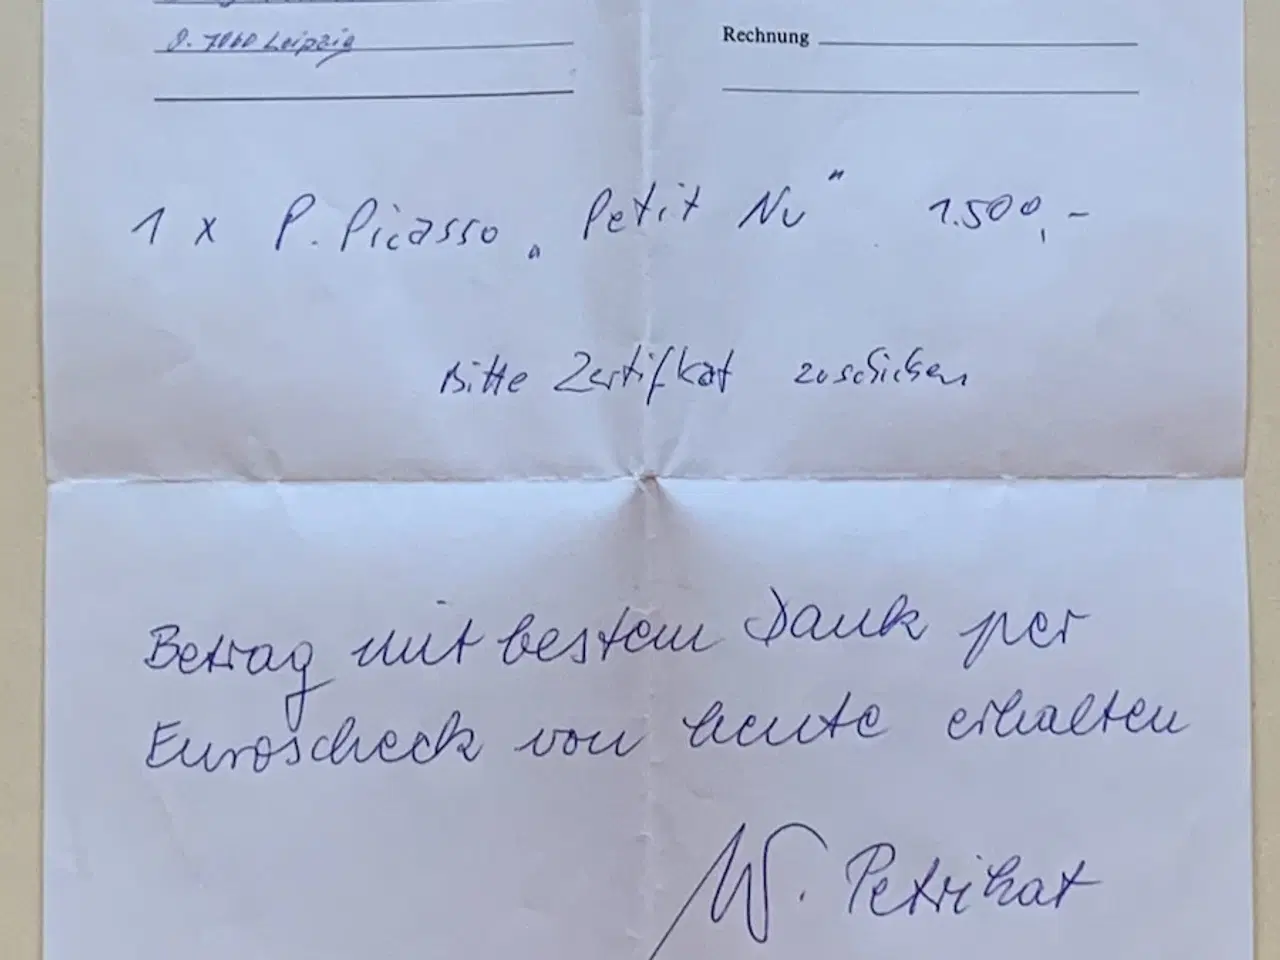 O-7060 Leipzig
Rechnung
1 x P. Picasso „Petit Nu" 1.500,-
Bitte Zertifikat zuschicken
Betrag mit bestem Dank per
Euroscheck von heute erhalten
W. Petrikat